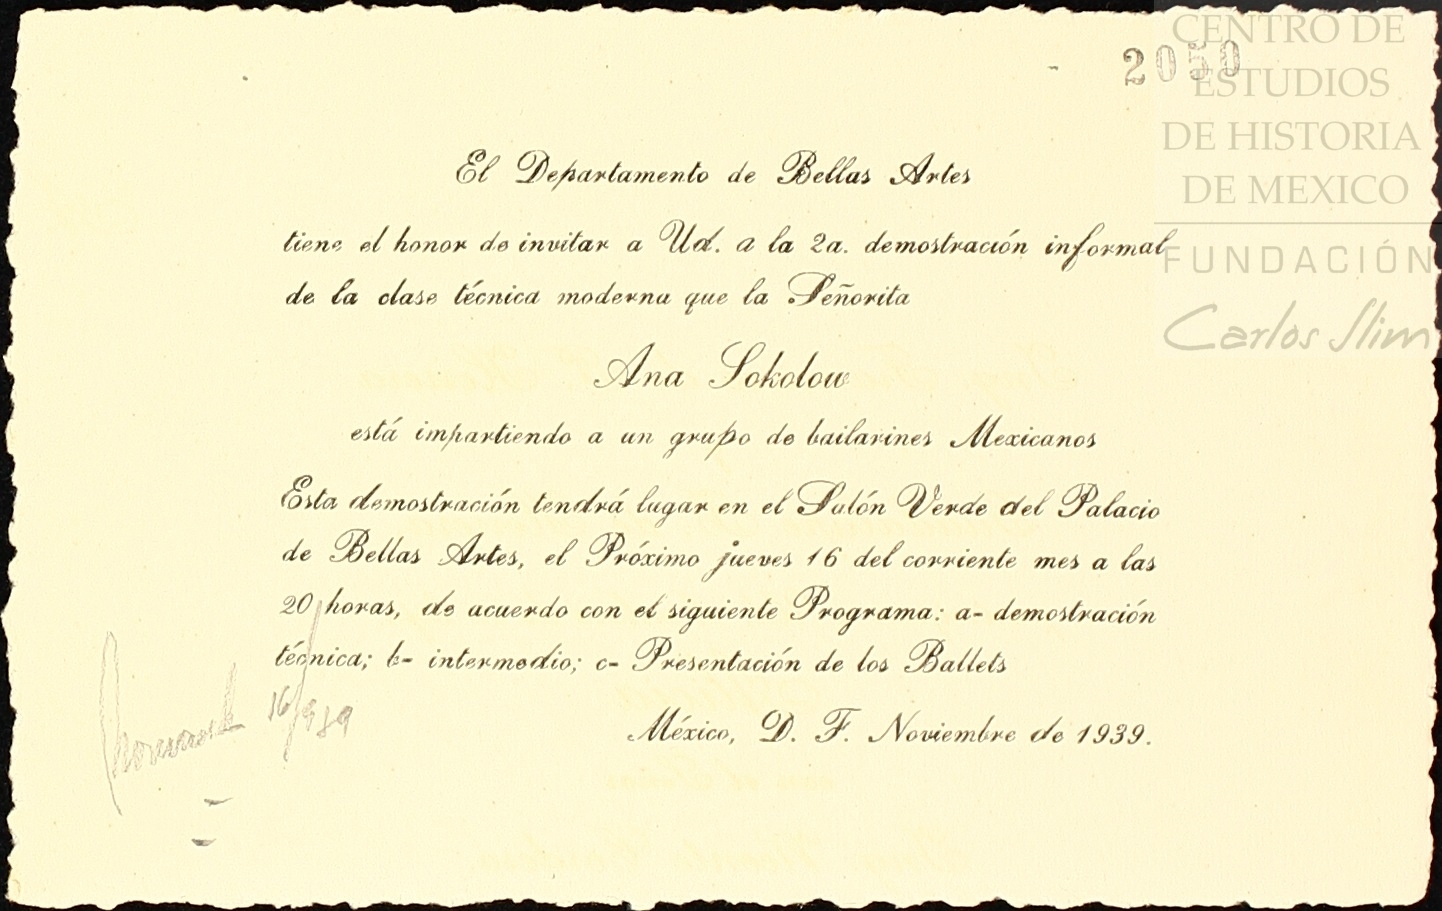 2050
CENTRO DE
ESTUDIOS
DE HISTORIA
DE MEXICO
FUNDACIÓN
Carlos Slim
El Departamento de Bellas Artes
tiene el honor de invitar a Ud. a la 2a. demostración informal
de la clase técnica moderna que la Señorita
Ana Sokolow
está impartiendo a un grupo de bailarines Mexicanos
Esta demostración tendrá lugar en el Salón Verde del Palacio
de Bellas Artes, el Próximo jueves 16 del corriente mes a las
20 horas, de acuerdo con el siguiente Programa: a- demostración
técnica; b- intermedio; c- Presentación de los Ballets
México, D. F. Noviembre de 1939.